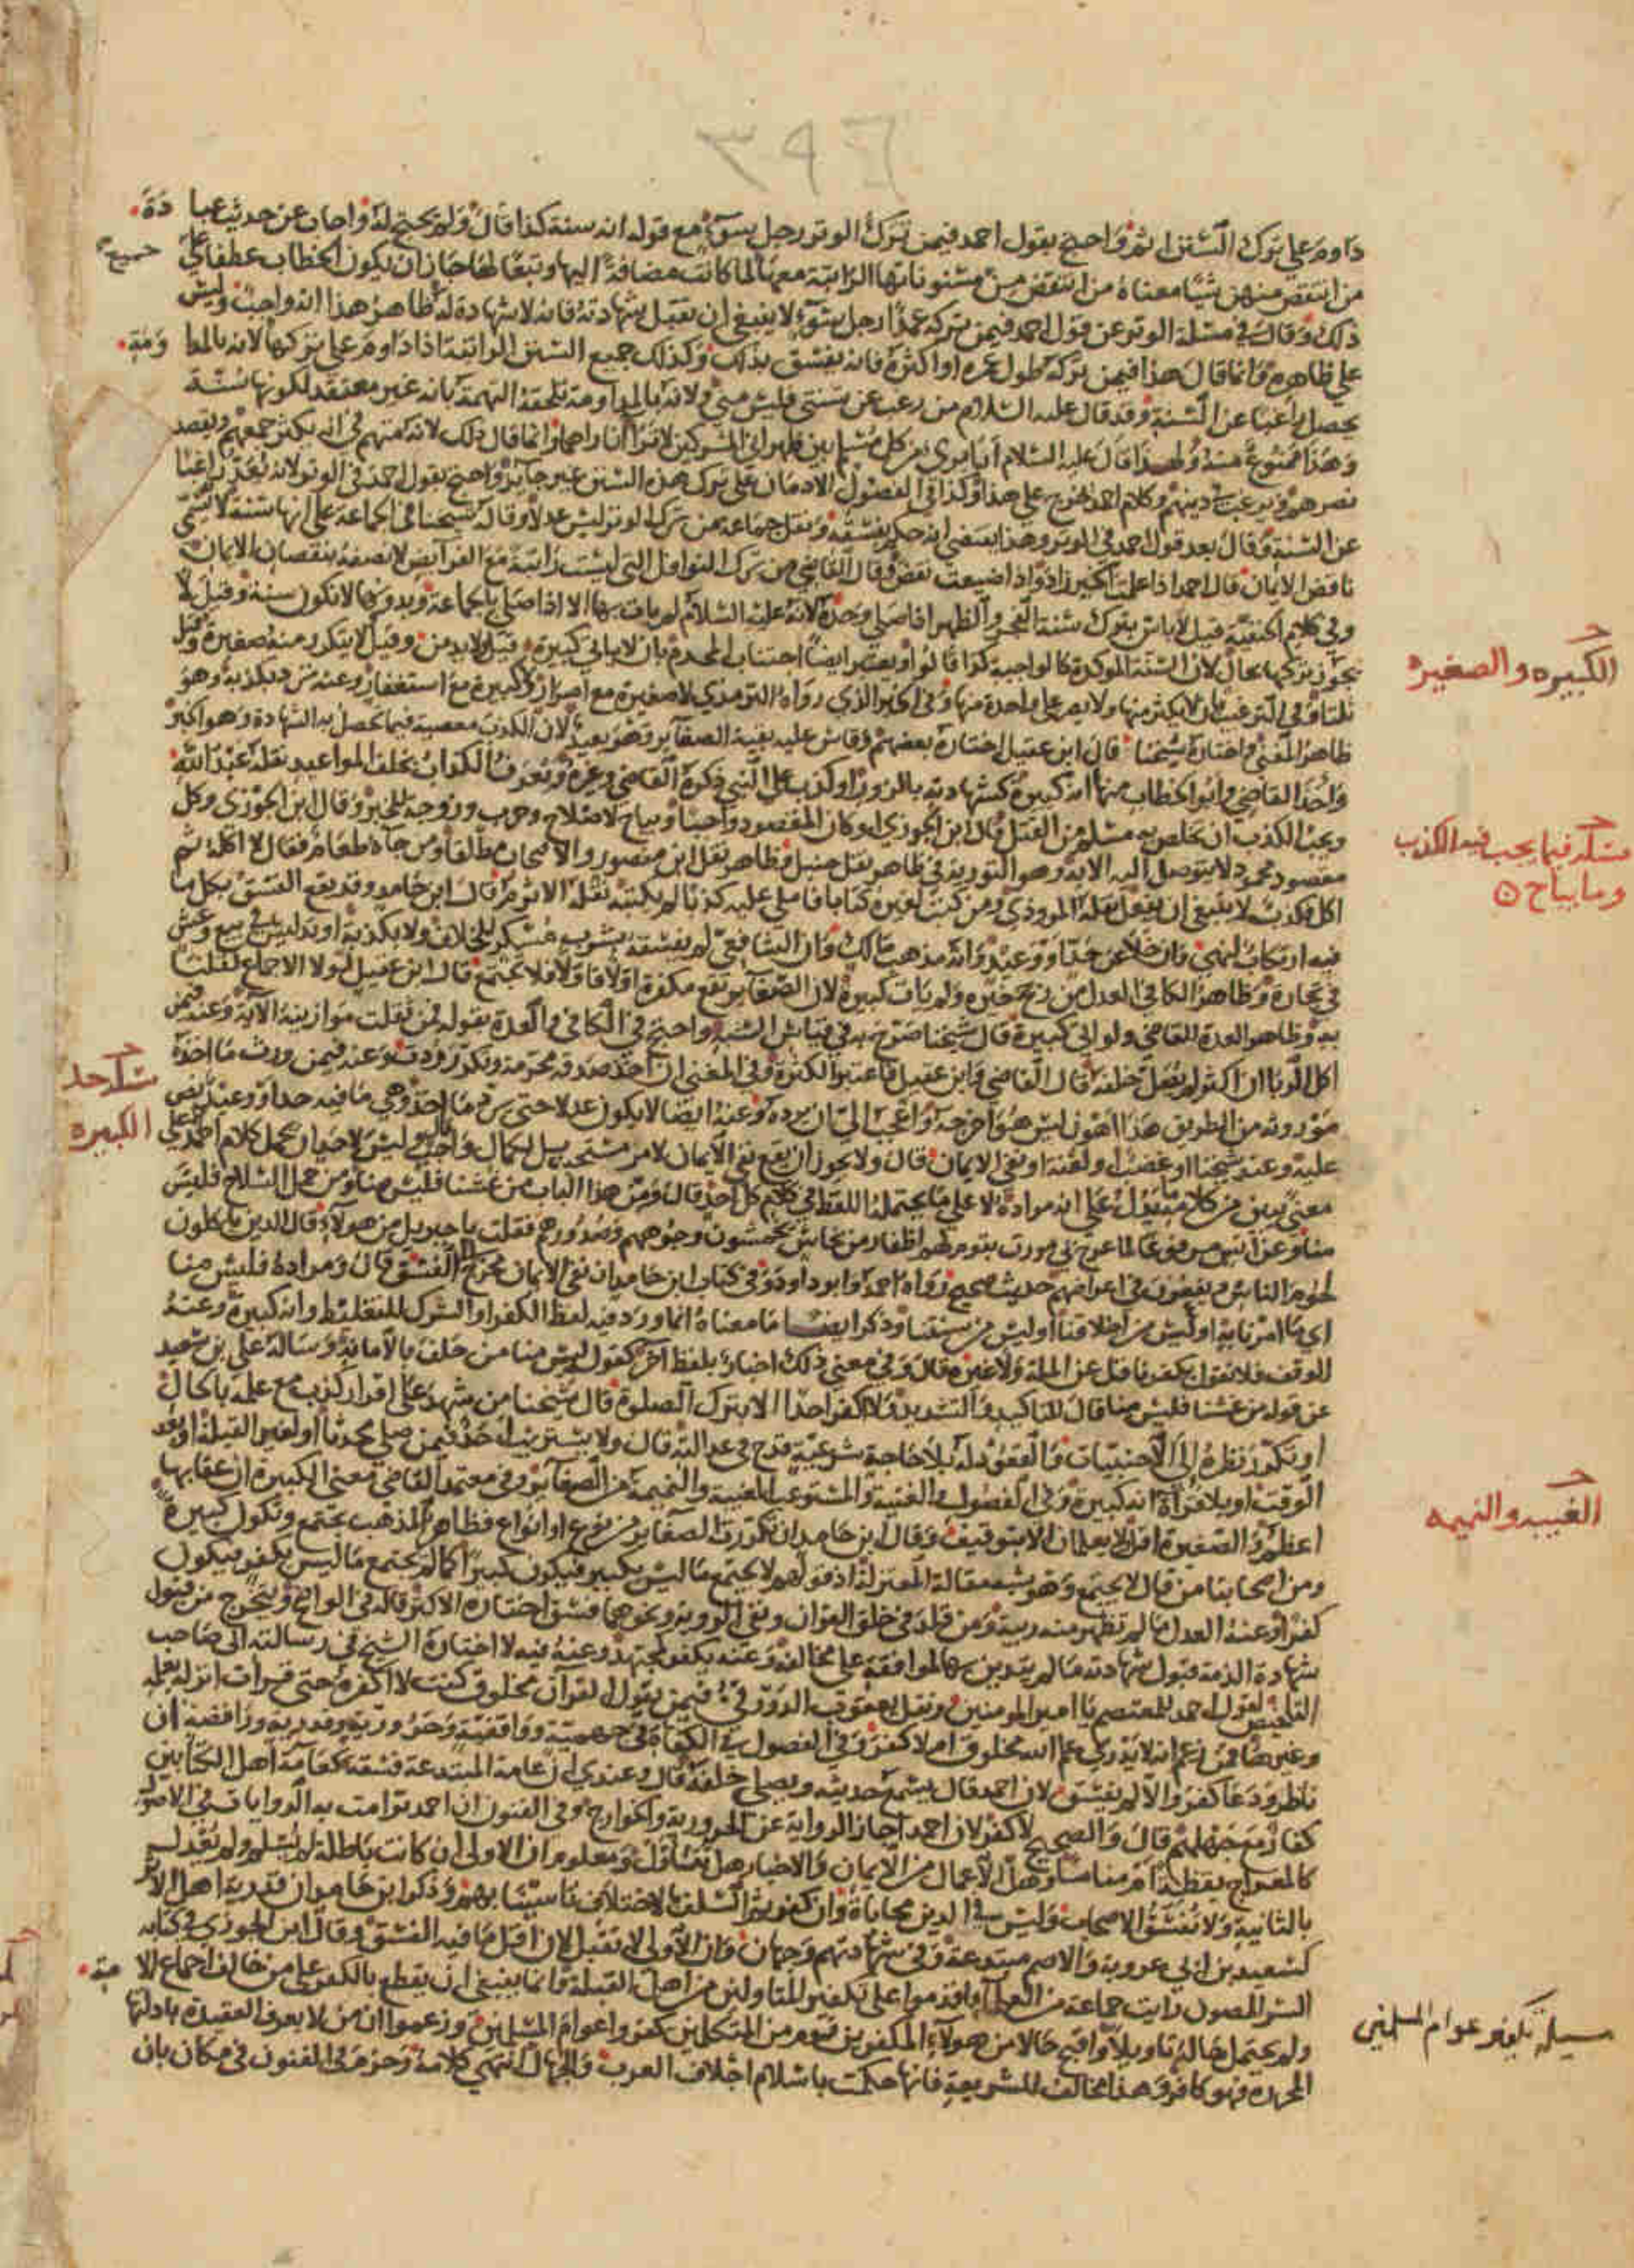 ٣٩٦
داوم على ترك السنن اثم واحتج بقول احمد فيمن ترك الوتر رجل سوء مع قوله انه سنة كذا قال ولم يحتج له واجاب عن حديث عبادة
من انتقص منهن شيئا معناه من انتقص من مسنوناتها الراتبة معها لما كانت مضافة اليها وتبعا لها جاز ان يكون الخطاب عطفا على جميع
ذلك وقال في مسئلة الوتر عن قول احمد فيمن تركه عمدا رجل سوء لا ينبغي ان تقبل شهادته فانه لا شهادة له ظاهر هذا انه واجب وليس
على ظاهره وانما قال هذا فيمن تركه طول عمره او اكثره فانه يفسق بذلك وكذلك جميع السنن الراتبة اذا داوم على تركها لانه بالمداومة
يحصل راغبا عن السنة وقد قال عليه السلام من رغب عن سنتي فليس مني ولانه بالمداومة تلحقه التهمة بانه غير معتقد لكونها سنة
وهذا ممنوع منه ولهذا قال عليه السلام انا بري من كل مسلم بين ظهراني المشركين لا تراا ناراهما وانما قال ذلك لانه متهم في انه يكثر جمعهم ويقصد
نصرهم ويرغب في دينهم وكلام احمد خرج على هذا وكذا في الفصول الادمان على ترك هذه السنن غير جايز واحتج بقول احمد في الوتر لانه يعد راغبا
عن السنة وقال بعد قول احمد في الوتر وهذا يقتضي انه حكم بفسقه ونقل جماعة من ترك الوتر ليس عدلا وقاله شيخنا في الجماعة على انها سنة لا يسمى
ناقص الايمان قال احمد اذا عملت الخير زاد واذا ضيعت نقص وقال القاضي من ترك النوافل التي ليست راتبة مع الفرايض لا يصفه بنقصان الايمان
وفي كلام الحنفية قيل لا باس بترك سنة الفجر والظهر اذا صلى وحده لانه عليه السلام لم يات بها الا اذا صلى بالجماعة وبدونها لا تكون سنة وقيل لا
يجوز تركها بحال لان السنة الموكدة كالواجبة كذا قالوا ويعتبر ايضا اجتناب المحرم بان لا ياتي كبيرة قيل ولا يدمن وقيل لا يتكرر منه صغيرة وقيل
ثلثا وفي الترغيب بان لا يكثر منها ولا يصر على واحدة منها وفي الخبر الذي رواه الترمذي لا صغيرة مع اصرار ولا كبيرة مع استغفار وعنه ترد بكذبة وهو
ظاهر المغني واختاره شيخنا قال ابن عقيل اختاره بعضهم وقاس عليه بقية الصغاير وهو بعيد لان الكذب معصية فيما تحصل به الشهادة وهو اكبر
واخذ القاضي وابو الخطاب منها انه كبيرة كشهادته بالزور او كذب على النبي ذكره القاضي وغيره ويعرف الكذاب بخلف المواعيد نقله عبد الله
ويجب الكذب ان تخلص به مسلم من القتل قال ابن الجوزي او كان المقصود واجبا ويباح لاصلاح وحرب وزوجة للخبر وقال ابن الجوزي وكل
مقصود محمود لا يتوصل اليه الا به وهو التورية في ظاهر نقل حنبل وظاهر نقل ابن منصور والاصحاب مطلقا ومن جاه طعام فقال لا اكله ثم
اكل فكذب لا ينبغي ان يفعل نقله المروذي ومن كتب لغيره كتابا فاملى عليه كذبا لم يكتبه نقله الاثرم قال ابن حامد وقد يقع الفسق بكل ما
فيه ارتكاب النهي وان خلا عن حد او وعيد وانه مذهب مالك وان الشافعي لم يفسقه بشرب مسكر للخلاف ولا بكذبة او تدليس في بيع وغش
في تجارة وظاهر الكافي العدل من رجح خيره ولم يات كبيرة لان الصغاير تقع مكفرة اولا فاولا فلا تجتمع قال ابن عقيل لولا الاجماع لقلنا
به وظاهر العدة للقاضي ولو اتى كبيرة قال شيخنا صرح به في قياس الشبه واحتج في الكافي والعدة بقوله فمن ثقلت موازينه الاية وعنه فيمن
اكل الربا ان اكثر لم يصل خلفه قال القاضي وابن عقيل فاعتبر الكثرة وفي المغني ان اخذ صدقة محرمة وتكرر ردت وعنه فيمن ورث ما اخذه
موروثه من الطريق هذا اهون ليس هو اخرجه واعجب الي ان يرده وعنه ايضا لا يكون عدلا حتى يرد ما اخذ وهي ما فيه حد او وعيد نص
عليه وعند شيخنا او غضب او لعنة او نفي الايمان قال ولا يجوز ان يقع نفي الايمان لامر مستحب بل لكمال واجب قال وليس لاحد ان يحمل كلام احمد الا على
معنى يبين من كلامه ما يدل على انه مراده لا على ما يحتمله اللفظ في كلام كل احد قال ومن هذا الباب من غشنا فليس منا ومن حمل السلاح فليس
منا وعن انس مرفوعا لما عرج بي مررت بقوم لهم اظفار من نحاس يخمشون وجوههم وصدورهم فقلت يا جبريل من هولاء قال الذين ياكلون
لحوم الناس ويقعون في اعراضهم حديث صحيح رواه احمد وابو داود وفي كتاب ابن حامد ان نفي الايمان مخرج الى الفسق قال ومراده فليس منا
اي ما امرنا به او ليس من اخلاقنا او ليس من سنتنا وذكر ايضا ما معناه انما ورد فيه لفظ الكفر او الشرك للتغليظ وانه كبيرة وعنه
الوقف فلا نقول بكفر ناقل عن الملة ولا غيره قال وفي معنى ذلك اخبار بلفظ اخر كقوله ليس منا من حلف بالامانة وساله علي بن سعيد
عن قوله من غشنا فليس منا قال للتاكيد والتشديد ولا اكفر احدا الا بترك الصلوة قال شيخنا من شهد على اقرار كذب مع علمه بالحال
او تكرر نظره الى الاجنبيات والقعود له بلا حاجة شرعية قدح في عدالته قال ولا يستريب احد فيمن صلى محدثا او لغير القبلة او بعد
الوقت او بلا قراة انه كبيرة وفي الفصول والغنية والمستوعب الغيبة والنميمة من الصغاير وفي معتمد القاضي معنى الكبيرة ان عقابها
اعظم والصغيرة اقل ولا يعلمان الا بتوقيف وقال ابن حامد ان تكررت الصغاير من نوع او انواع فظاهر المذهب تجتمع وتكون كبيرة
ومن اصحابنا من قال لا تجتمع وهو يشبه مقالة المعتزلة اذ قولهم لا يجتمع ما ليس بكبير فيكون كبيرا كما لم يجتمع ما ليس بكفر فيكون
كفرا وعنه العدل ما لم تظهر منه ريبة ومن قلد في خلق القران ونفي الروية ونحوهما فسق اختاره الاكثر قاله في الواضح ويتخرج من قبول
شهادة الذمة قبول شهادته ما لم يتدين بها لموافقه على مخالفه وعنه يكفر كمجتهد وعنه فيه لا اختاره الشيخ في رسالته الى صاحب
التلخيص لقول احمد للمعتصم يا امير المومنين ونقل يعقوب الدورقي فيمن يقول القران مخلوق كنت لا اكفره حتى قرات انزله بعلمه
وغيرها فمن زعم انه لا يدري علم الله مخلوق ام لا كفر وفي الفصول في الكفاءة في جهمية وواقفية وحرورية وقدرية ورافضة ان
ناظر ودعا كفر والا لم يفسق لان احمد قال يسمع حديثه ويصلى خلفه قال وعندي ان عامة المبتدعة فسقة كعامة اهل الكتابين
كفار مع جهلهم قال والصحيح لا كفر لان احمد اجاز الرواية عن الحرورية والخوارج وفي الفنون ان احمد تراءت به الروايات في الاصول
كالمعراج يقظة ام مناما وهل الاعمال من الايمان والاخبار هل تتاول ومعلوم ان الاولى ان كانت باطلة لم يسلم ولم يعدل
بالثانية ولا نفسق الاصحاب وليس في الدين محاباة وان كفر بها السلف بالاختلاف تاسينا بهم وذكر ابن حامد ان قدرية اهل الاثر
كسعيد بن ابي عروبة والاصم مبتدعة وفي شهادتهم وجهان وان الاولى لا تقبل لان اقل ما فيه الفسق وقال ابن الجوزي في كتابه
السر المصون رايت جماعة من العلما اقدموا على تكفير المتاولين من اهل القبلة وانما ينبغي ان يقطع بالكفر على من خالف اجماع الامة
ولم يحتمل حاله تاويلا واقبح حالا من هولاء المكفرين قوم من المتكلمين كفروا عوام المسلمين وزعموا ان من لا يعرف العقيدة بادلتها
المحررة فهو كافر وهذا مخالف للشريعة فانها حكمت باسلام اجلاف العرب والجهال انتهى كلامه وجزم في الفنون في مكان بان
الكبيره والصغيره
مسئله فيما يجب فيه الكذب
وما يباح
مسئله حد
الكبيره
الغيبه والنميمه
مسيلة تكفير عوام المسلمين